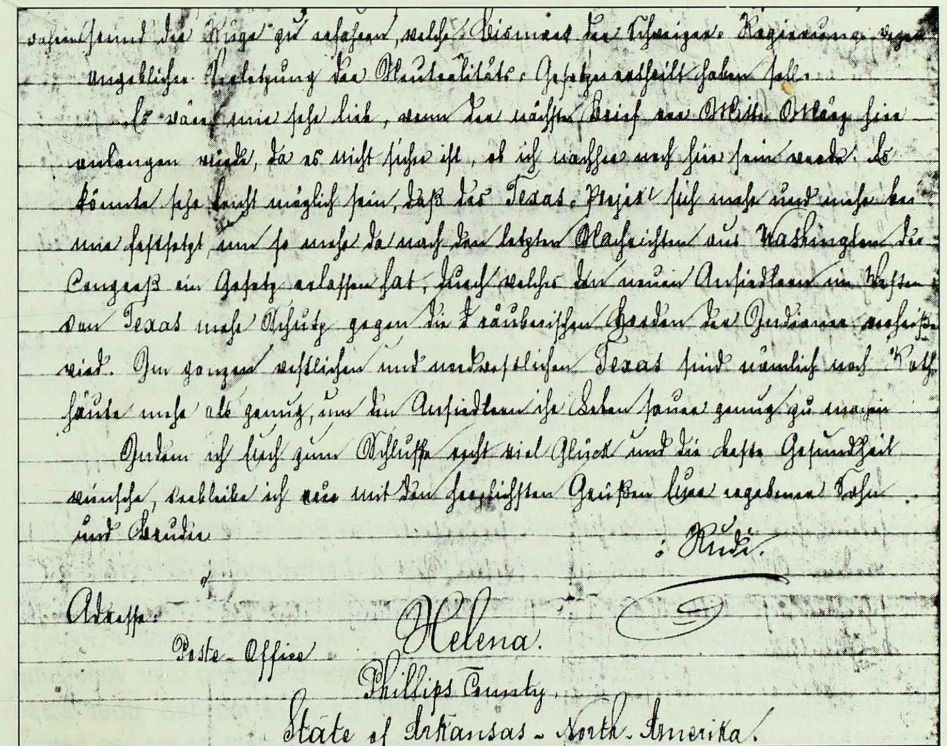 während und die Rüge zu erfahren, welche Bismark der Schweizer-Regierung wegen
angeblicher Verletzung der Neutralitäts-Gesetze ertheilt haben soll.
Es wäre mir sehr lieb, wenn der nächste Brief vor Mitte März hier
anlangen würde, da es nicht sicher ist, ob ich nachher noch hier sein werde. Es
könnte sehr leicht möglich sein, daß das Texas-Projekt sich mehr und mehr bei
mir festsetzt, um so mehr da nach den letzten Nachrichten aus Washington der
Congreß ein Gesetz erlassen hat, durch welches den neuen Ansiedlern im Westen
von Texas mehr Schutz gegen die räuberischen Horden der Indianer verheißen
wird. Im ganzen westlichen und nordwestlichen Texas sind nämlich noch Roth-
häute mehr als genug, um den Ansiedlern ihr Leben sauer genug zu machen
Indem ich Euch zum Schlusse recht viel Glück und die beste Gesundheit
wünsche, verbleibe ich nur mit den herzlichsten Grüßen Euer ergebener Sohn
und Bruder
Rudi.
Adresse:
Poste-Office Helena.
Phillips County.
State of Arkansas - North-Amerika.